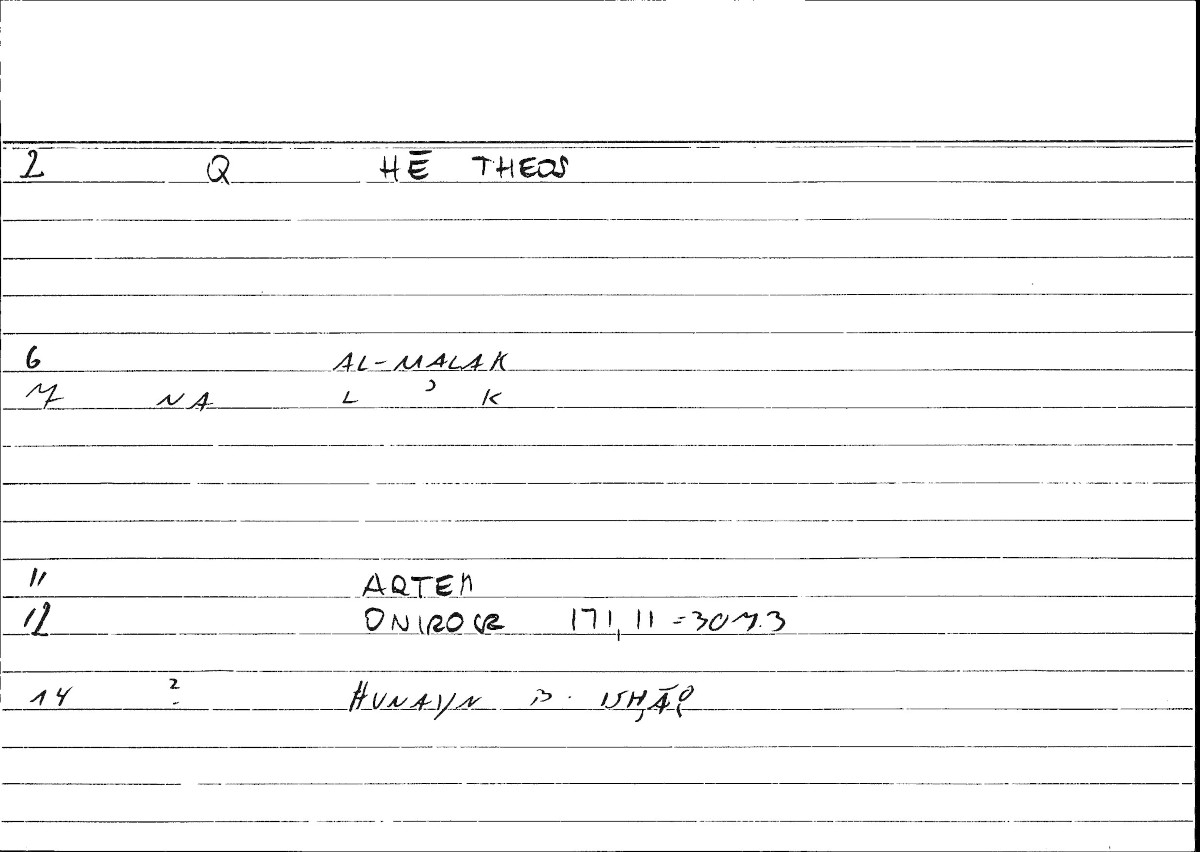 2 Q HĒ THEOS
6 AL-MALAK
7 NA L ʾ K
11 ARTEM
12 ONIROCR 171, 11 = 307.3
14 2 HUNAYN B. ISḤĀQ